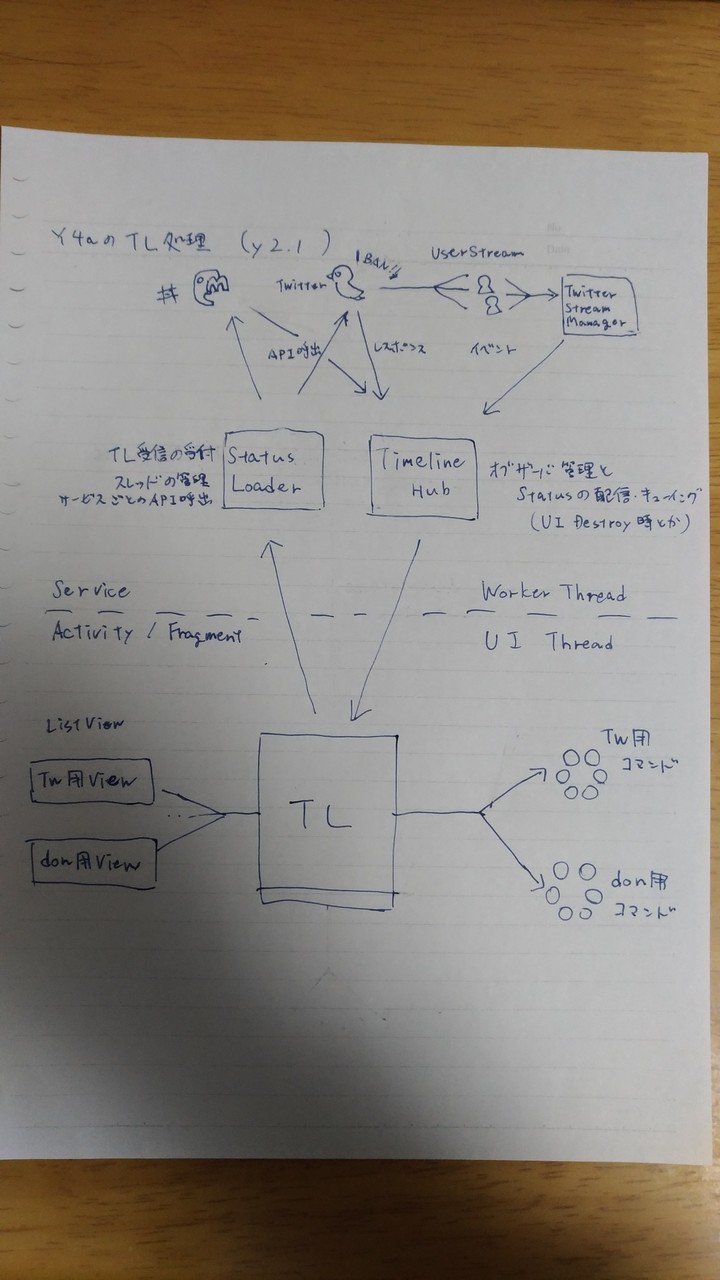 Y4aのTL処理 (y2.1)
BAN!!
UserStream
Twitter
Twitter
Stream
Manager
API呼出
レスポンス
イベント
TL受信の受付
スレッドの管理
サービスごとのAPI呼出
Status
Loader
Timeline
Hub
オブザーバ管理と
Statusの配信・キューイング
(UI Destroy時とか)
Service
Worker Thread
Activity / Fragment
UI Thread
ListView
Tw用View
don用View
TL
Tw用
コマンド
don用
コマンド